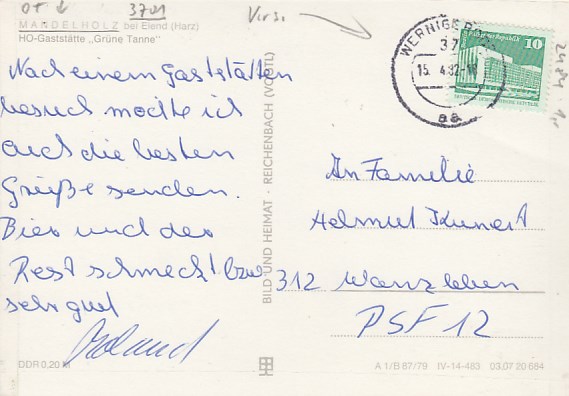 OT ↓ 3701 Vers.
MANDELHOLZ bei Elend (Harz)
HO-Gaststätte „Grüne Tanne"
Nach einem Gaststätten
besuch möchte ich
auch die besten
Grüße senden.
Bier und der
Rest schmeckt bzw
sehr gut
Roland
DDR 0,20 M
BILD UND HEIMAT · REICHENBACH (VOGTL)
WERNIGERODE
37
15. 4.82
aa
10
An Familie
Helmut Kunert
312 Wanzleben
PSF 12
A 1/B 87/79 IV-14-483 03 07 20 684